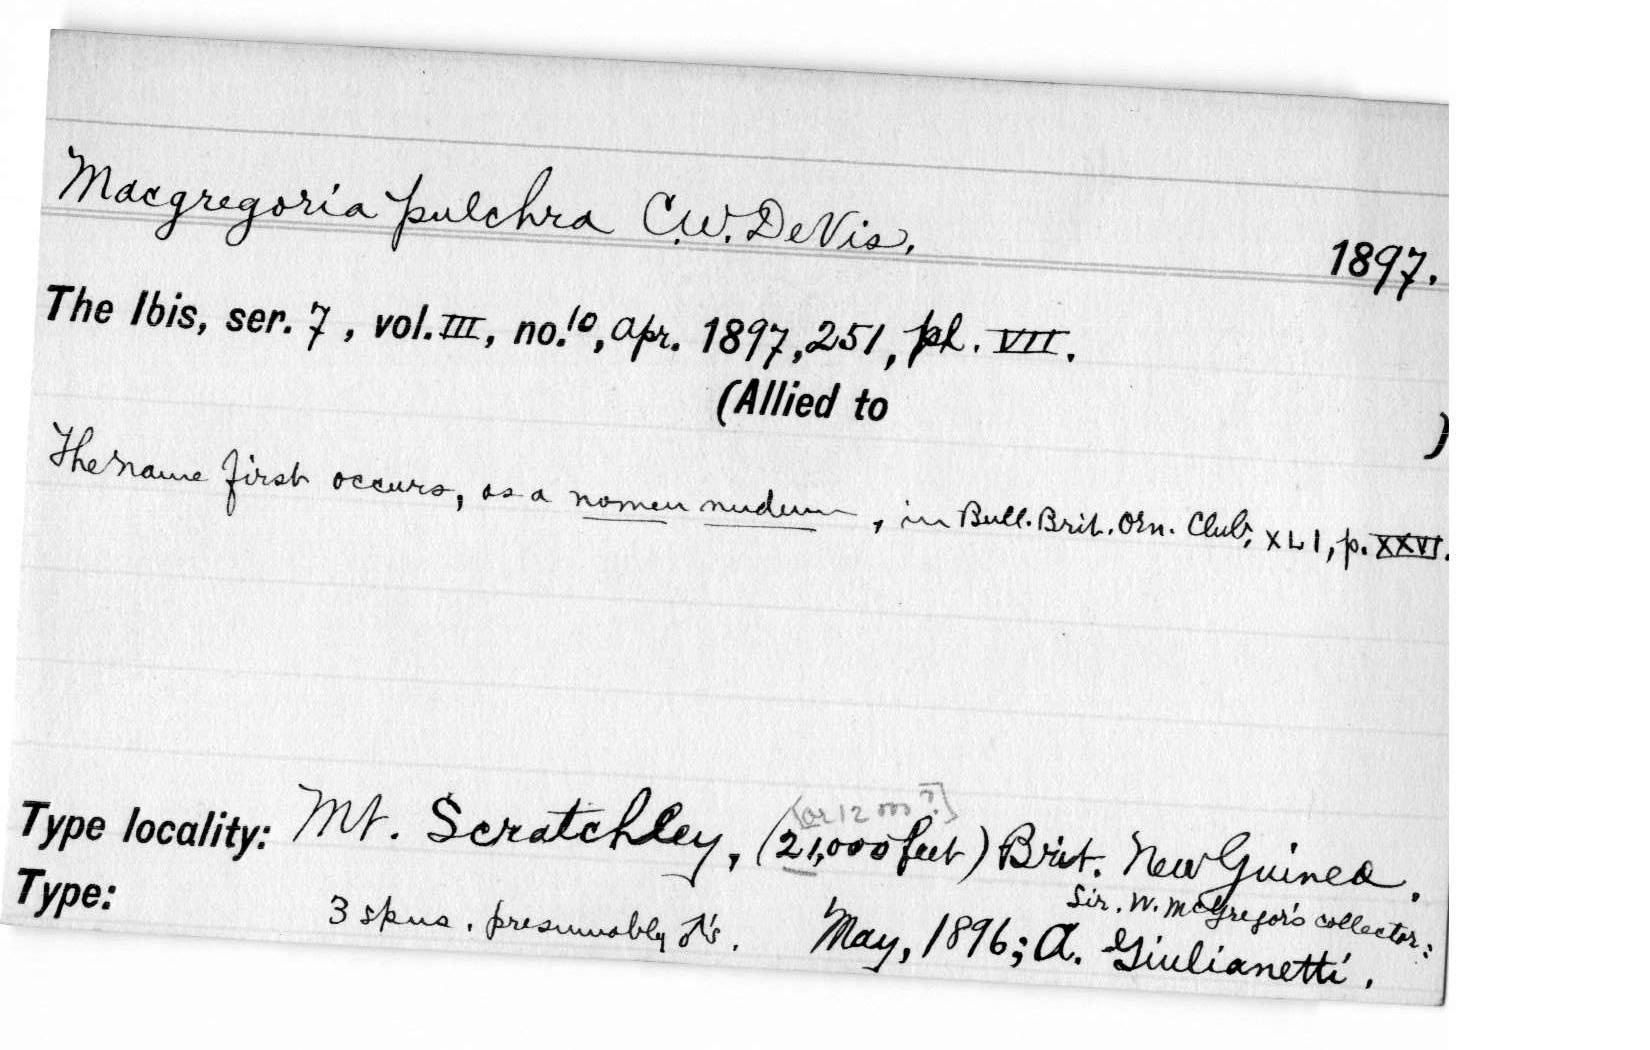 Macgregoria pulchra C.W. De Vis, 1897.
The Ibis, ser. 7, vol. III, no. 10, Apr. 1897, 251, pl. VII.
(Allied to )
The name first occurs, as a nomen nudum, in Bull. Brit. Orn. Club, XLI, p. XXVI.
[or 12 m ?]
Type locality: Mt. Scratchley, (21,000 feet) Brit. New Guinea.
Sir. W. McGregor's collector:
Type: 3 spns. presumably ♂'s. May, 1896; A. Giulianetti.